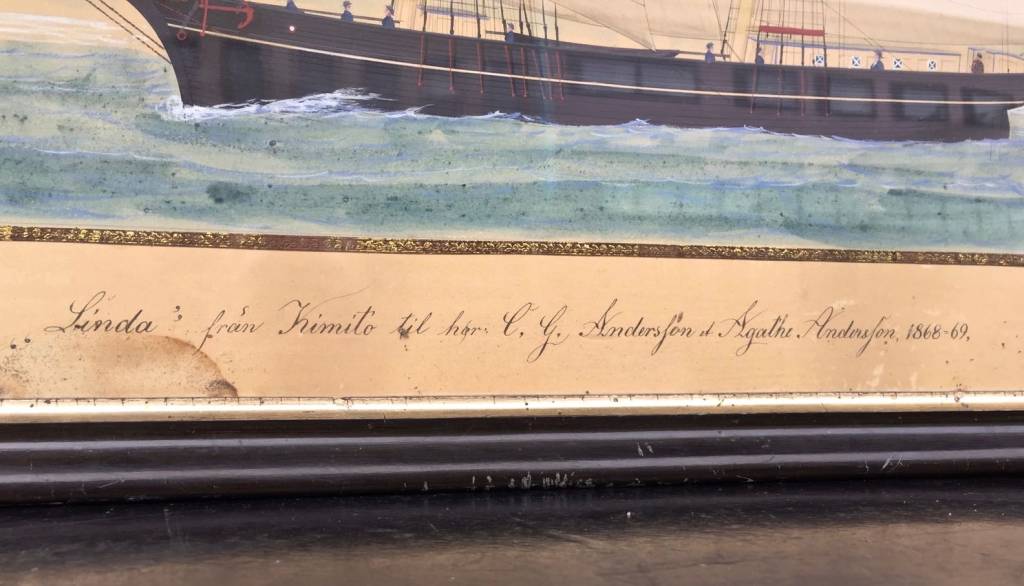 „Linda” från Kimito til hör: C. G. Andersson et Agathe Andersson, 1868-69,